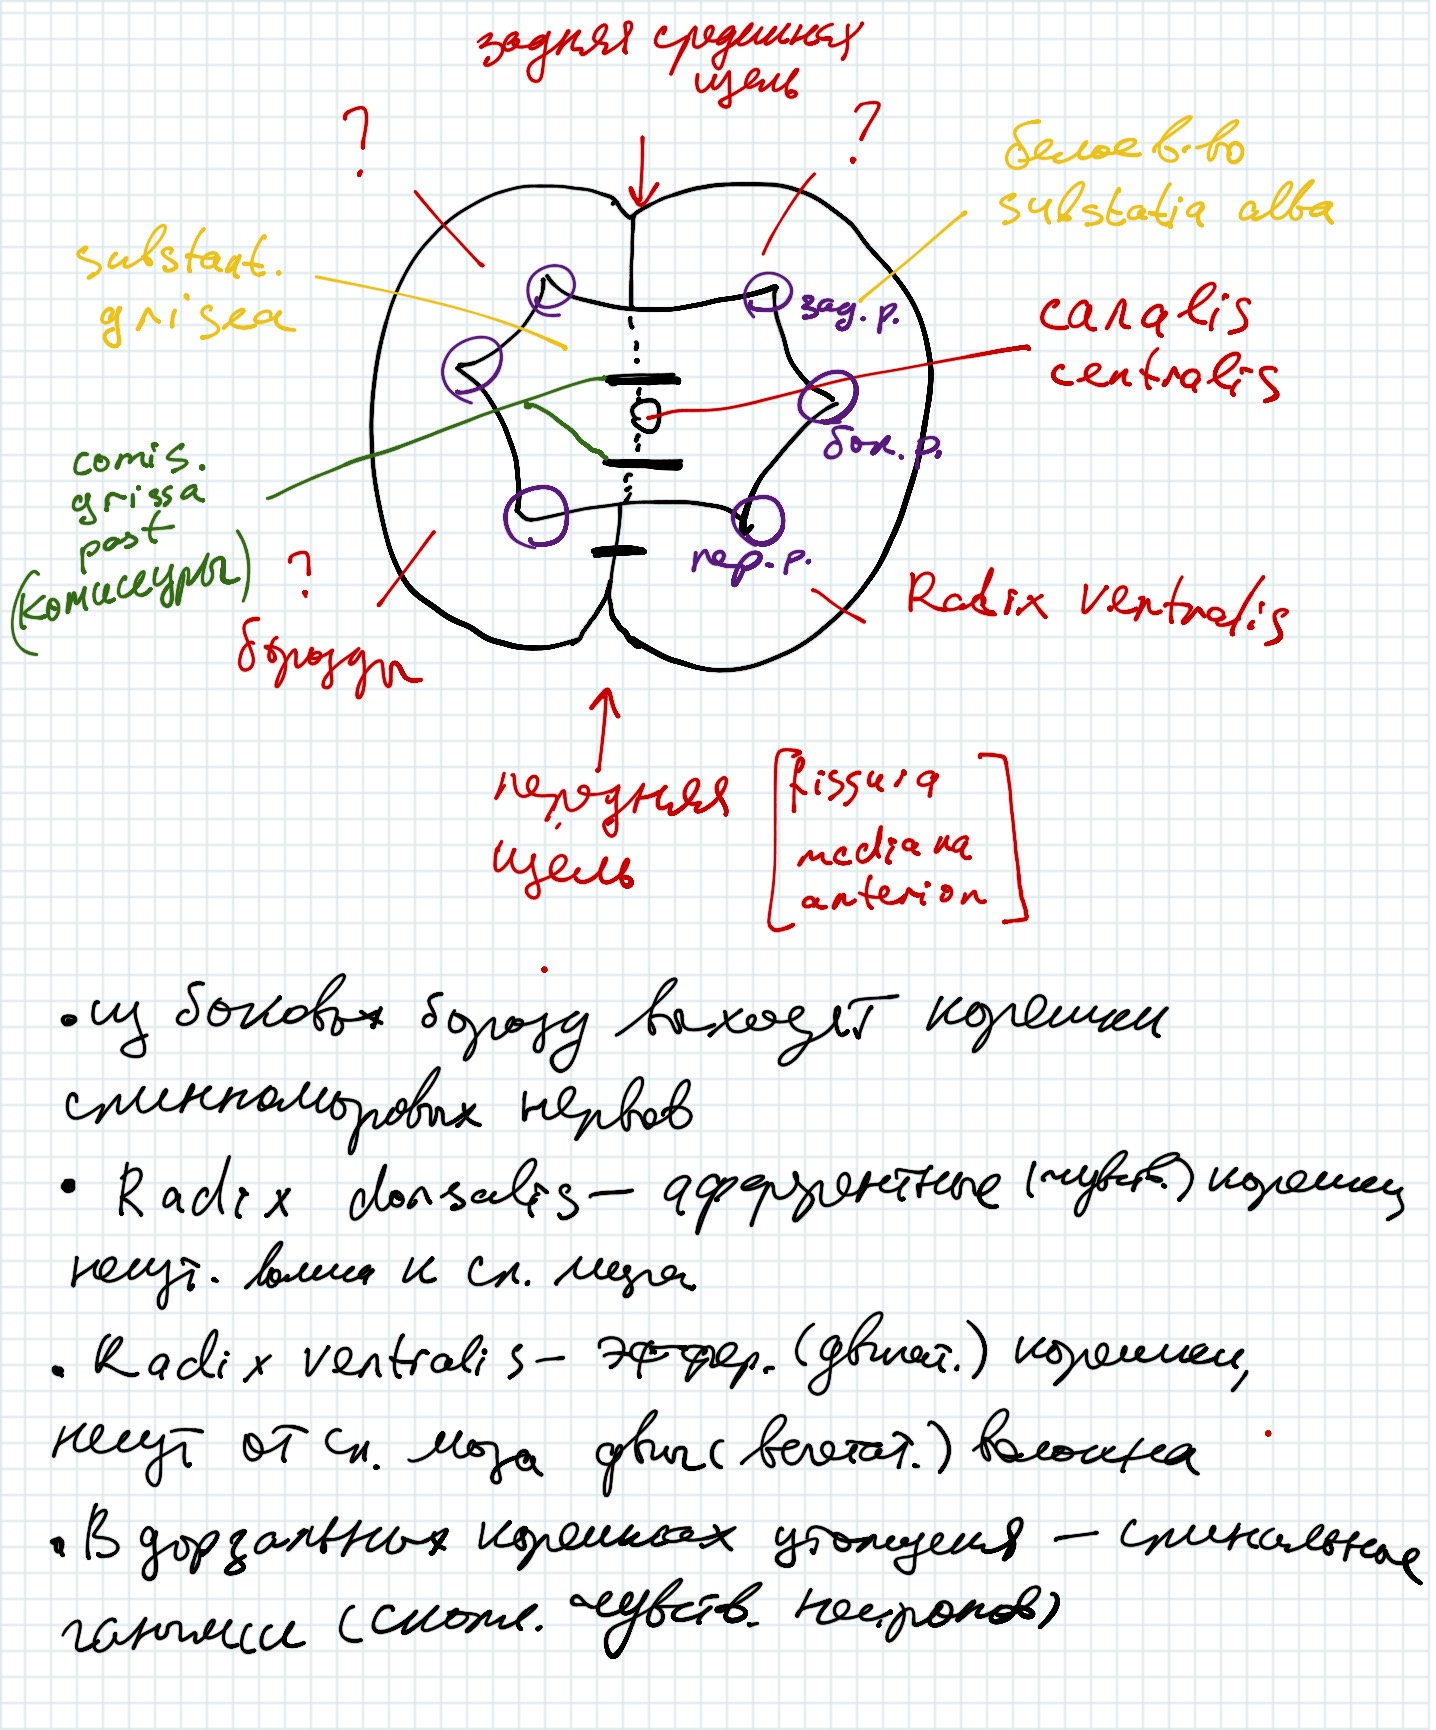 задняя срединная
щель
?
?
белое в-во
substatia alba
substant.
grisea
зад. р.
canalis
centralis
бок. р.
comis.
grissa
post
(комиссуры)
?
борозды
пер. р.
Radix ventralis
передняя
щель
fissura
mediana
anterion
• из боковых борозд выходят корешки
спинномозговых нервов
• Radix dorsalis – афферентные (чувств.) корешки
несут. волокна к сп. мозга
• Radix ventralis – эффер. (двигат.) корешки,
несут от сп. мозга двиг (вегетат.) волокна
• В дорзальных корешках утолщения – спинальные
ганглии (скопл. чувств. нейронов)